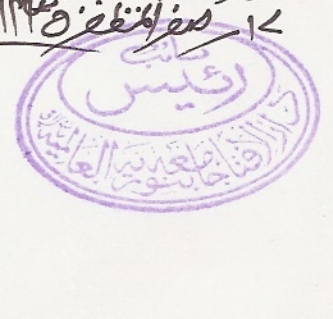 صفر المظفر
نائب
رئیس
دار الافتاء جامعہ بنوریہ العالمیہ